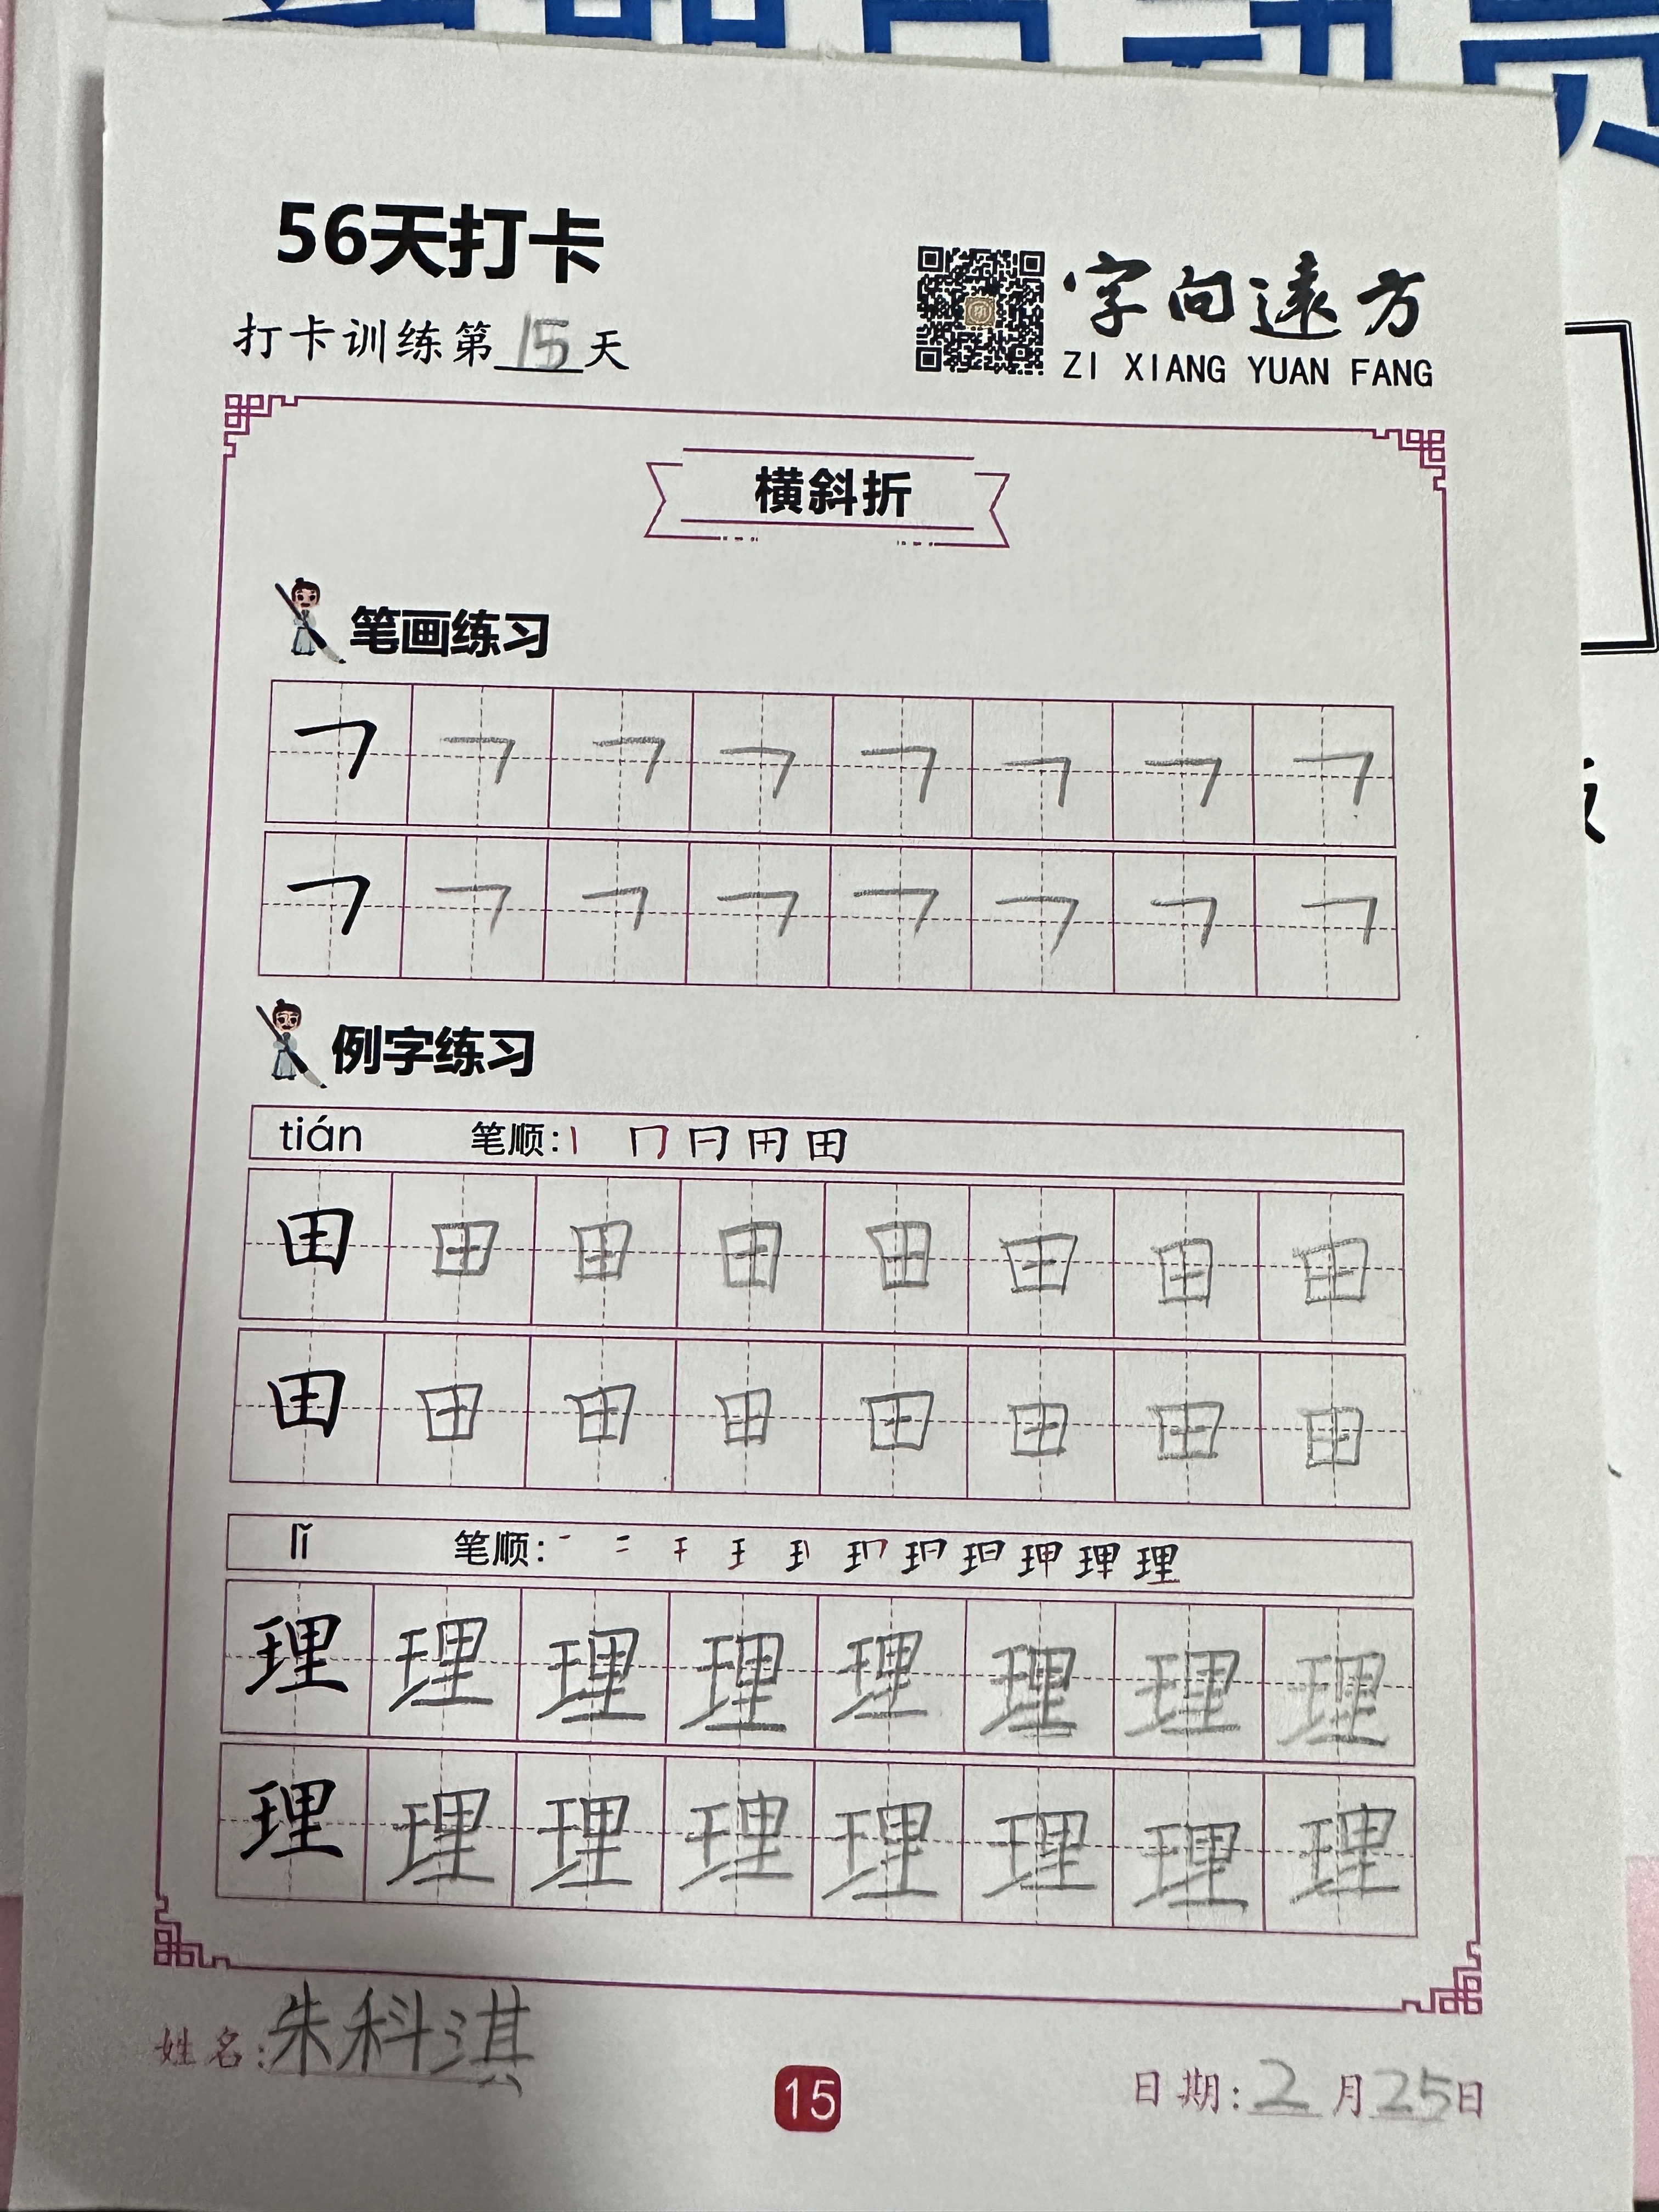 56天打卡
打卡训练第15天
字向遠方
ZI XIANG YUAN FANG
横斜折
笔画练习
㇕ ㇕ ㇕ ㇕ ㇕ ㇕ ㇕ ㇕
㇕ ㇕ ㇕ ㇕ ㇕ ㇕ ㇕ ㇕
例字练习
tián 笔顺: 丨 冂 日 用 田
田 田 田 田 田 田 田 田
田 田 田 田 田 田 田 田
lǐ 笔顺: 理
理 理 理 理 理 理 理 理
理 理 理 理 理 理 理 理
姓名:朱科淇
15
日期:2月25日